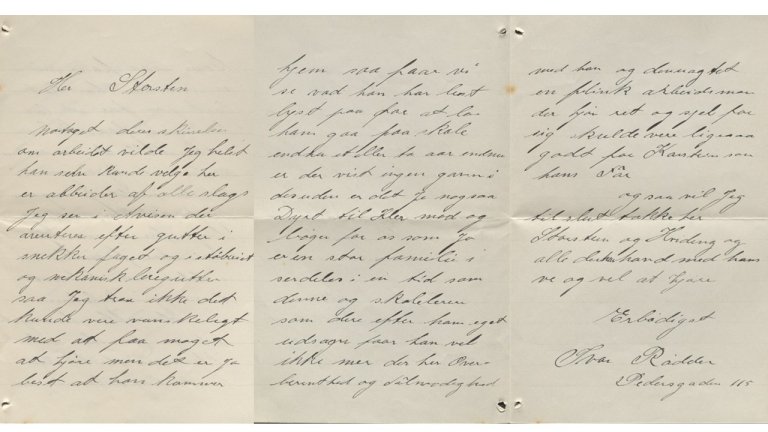 Her Storsten
motaget deres skrivelse
om arbeidet vilde Jeg helst
han selv kunde velge her
er abbeider af alle slags
Jeg ser i Avisen der
averteres efter gutter i
snekker faget og i støberiet
og mekanisk leregutter
saa Jeg troa ikke det
kunde vere vanskeligt
med at faa noget
at hjøre men det er Jo
best at han kommer
hjem saa faar vi
se vad han har lest
lyst paa for at la
ham gaa paa skole
endnu et eller to aar endnu
er der vist ingen gavn i
desuden er det Jo nogsaa
Dyrt til Kler mad og
bøger for os som Jo
er en stor familie i
serdeles i en tid som
denne og skoleleren
som dere efter ham eget
udsagn faar han vel
ikke mer der her Over-
berenthed og
med han og
en flink arbeidsman
der hjør ret og sjel for
sig skulde vere ligesaa
godt for Karsten som
hans Far
og saa vil Jeg
til slut takke her
Storsten og og
alle med hans
ve og vel at hjøre
Erbødigst
Ivar Rødder
Pedersgaden 115